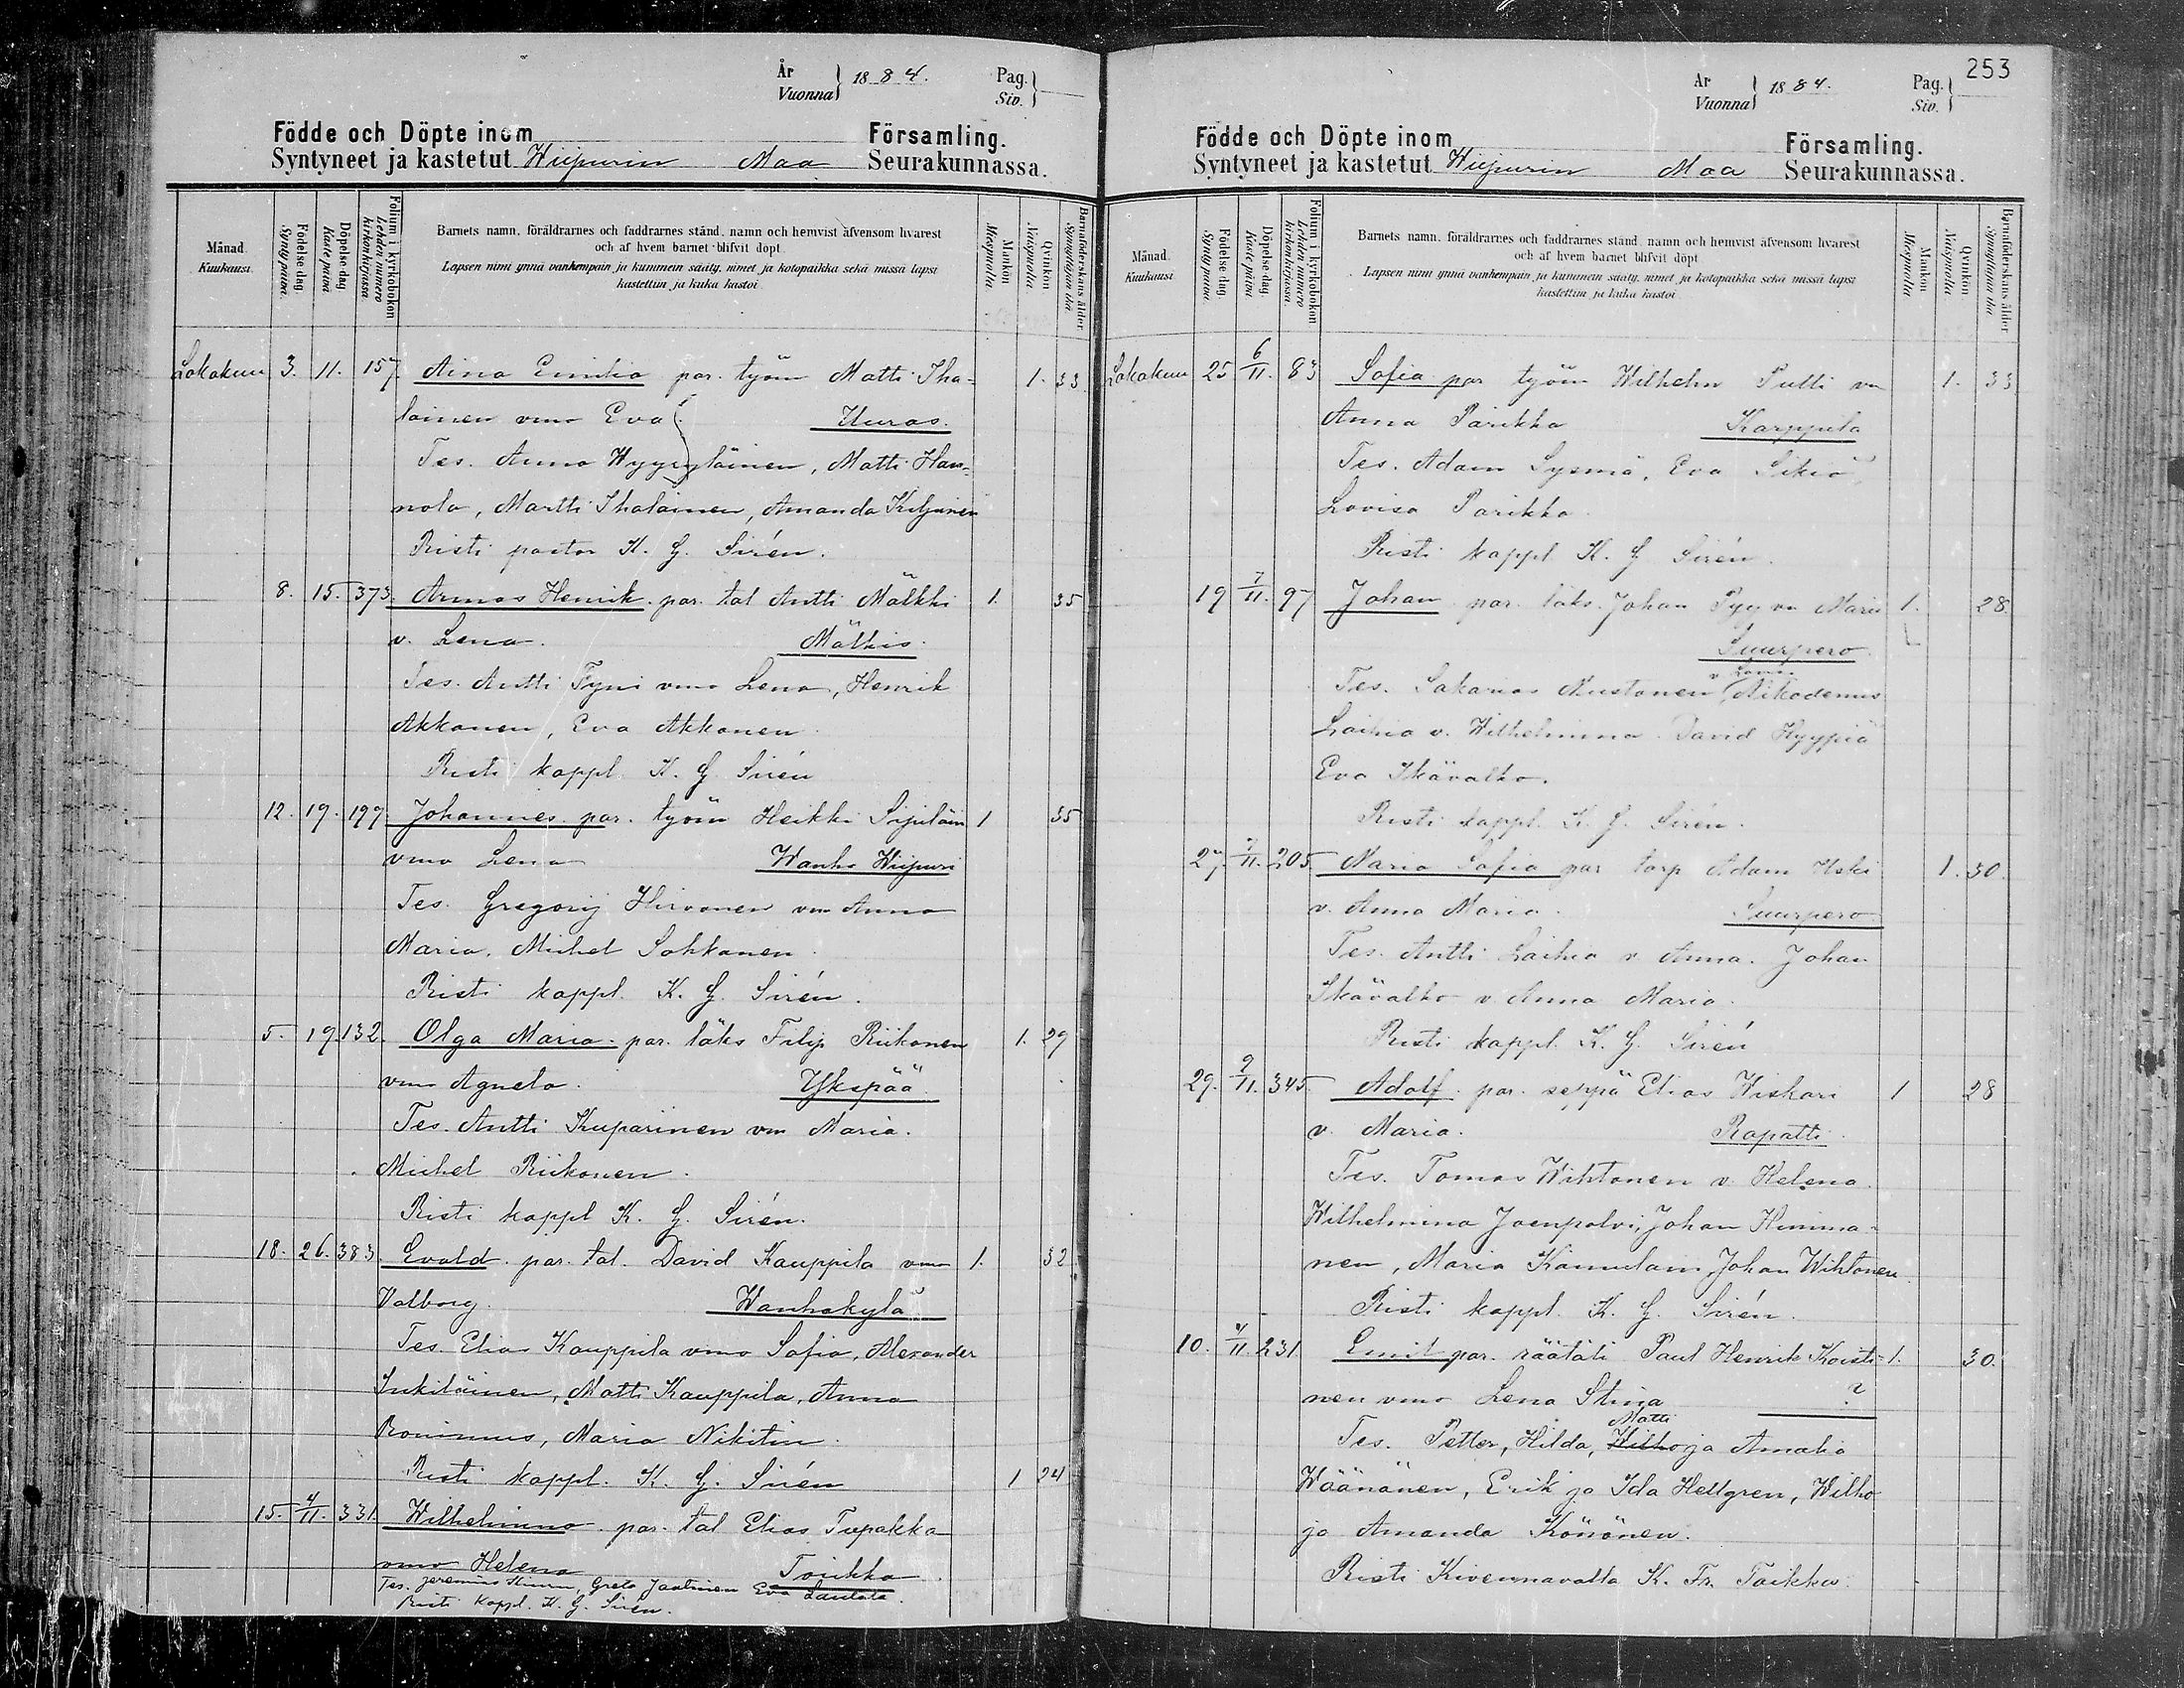 År
Vuonna } 1884.
Pag.
Siv. }
Födde och Döpte inom Församling.
Syntyneet ja kastetut Wiipurin Maa Seurakunnassa.
Månad. Kuukausi.
Födelse dag. Synty päivä.
Döpelse dag. Kaste päivä
Folium i kyrkoboken Lehden numero kirkonkirjassa.
Barnets namn, föräldrarnes och faddrarnes stånd, namn och hemvist äfvensom hvarest
och af hvem barnet blifvit döpt.
Lapsen nimi ynnä vanhempain ja kummein sääty, nimet ja kotopaikka sekä missä lapsi
kastettiin ja kuka kastoi.
Mankön Miespuolta.
Qvinkön Naispuolta.
Barnaföderskans ålder Synnyttäjän ikä.
Lokakuu 3. 11. 157. Aina Emilia par. työm Matti Iha- 1. 33
lainen vmo Eva Uuras.
Tes. Anna Hyyryläinen, Matti Han-
nola, Martti Ihalainen, Amanda Kiljunen
Risti pastor K. G. Sirén.
8. 15. 373. Armas Henrik par. tal Antti Mälkki 1. 35
v. Lena. Mälkis.
Tes. Antti Tyni vmo Lena, Henrik
Akkanen, Eva Akkanen.
Risti kappl. K. G. Sirén
12. 19. 199. Johannes par. työm Heikki Sipiläin 1 35
vmo Lena Wanha Wiipuri
Tes. Gregorij Hirvonen vm Anna
Maria. Michel Sokkanen.
Risti kappl. K. G. Sirén.
5. 19 132. Olga Maria par. läks Filip Riikonen 1. 29
vmo Agneta. Ykspää.
Tes. Antti Kuparinen vm Maria.
Michel Riikonen.
Risti kappl K. G. Sirén.
18. 26. 383. Evald par. tal. David Kauppila vmo 1. 32
Valborg. Wanhakylä
Tes. Elias Kauppila vmo Sofia, Alexander
Inkiläinen, Matti Kauppila, Anna
Ronimus, Maria Nikitin.
Risti kappl. K. G. Sirén 1 24
15. 4/11. 331 Wilhelmina par. tal Elias Tupakka
vmo Helena Toikka
Tes. Jeremias Hinnu, Greta Jaatinen Eva Lautala.
Risti kappl. K. G. Sirén.
253
År
Vuonna } 1884.
Pag.
Siv. }
Födde och Döpte inom Församling.
Syntyneet ja kastetut Wiipurin Maa Seurakunnassa.
Månad. Kuukausi
Födelse dag. Synty päivä.
Döpelse dag. Kaste päivä
Folium i kyrkoboken Lehden numero kirkonkirjassa.
Barnets namn, föräldrarnes och faddrarnes stånd, namn och hemvist äfvensom hvarest
och af hvem barnet blifvit döpt
Lapsen nimi ynnä vanhempain ja kummein sääty, nimet ja kotopaikka sekä missä lapsi
kastettiin ja kuka kastoi
Mankön Miespuolta
Qvinkön Naispuolta
Barnaföderskans ålder Synnyttäjän ikä
Lokakuu 25 6/11. 83 Sofia par työm Wilhelm Putti vm 1. 33
Anna Parikka Karppila
Tes. Adam Sysmä, Eva Sikiö,
Lovisa Parikka.
Risti kappl K. G. Sirén.
19 7/11. 97 Johan par. läks. Johan Pyy vm Maria 1. 28.
Suurpero.
v Lovis.
Tes. Sakarias Mustonen, Nikodemus
Laihia v. Wilhelmina. David Hyypiä
Eva Ikävalko.
Risti kappl. K. G. Sirén.
27. 7/11. 205 Maria Sofia par torp Adam Uski 1. 30.
v. Anna Maria. Suurpero
Tes. Antti Laihia v. Anna. Johan
Ikävalko v. Anna Maria.
Risti kappl. K. G. Sirén
29. 9/11. 345. Adolf par. seppä Elias Wiskari 1 28
v. Maria. Rapatti.
Tes. Tomas Wihtonen v. Helena.
Wilhelmina Joenpolvi, Johan Himma-
nen, Maria Kämäläin Johan Wihtonen.
Risti kappl. K. G. Sirén.
10. 4/11 231 Emil par. räätäli Paul Henrik Koisti- 1. 30.
nen vmo Lena Stina ?
Matti
Tes. Petter, Hilda, Wilho ja Amalia
Wäänänen, Erik ja Ida Hellgren, Wilho
ja Amanda Könönen.
Risti Kivennavalla K. Fr. Toikka.